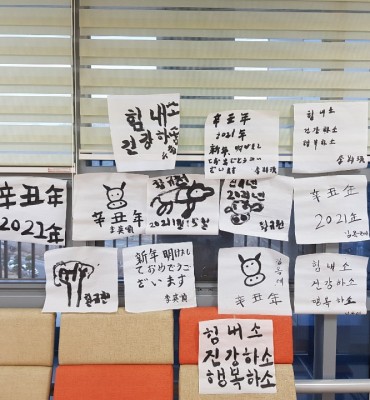 힘내소
건강하소
辛丑年
2021年
新年 明けまし
ておめでとうご
ざいます
힘내소
건강하소
행복하소
辛丑年
2021年
辛丑年
李英順
2021년 1월 5일
신축년
2021년
辛丑年
2021年
新年 明けまし
ておめでとうご
ざいます
李英順
辛丑年
힘내소
건강하소
행복하소
힘내소
건강하소
행복하소